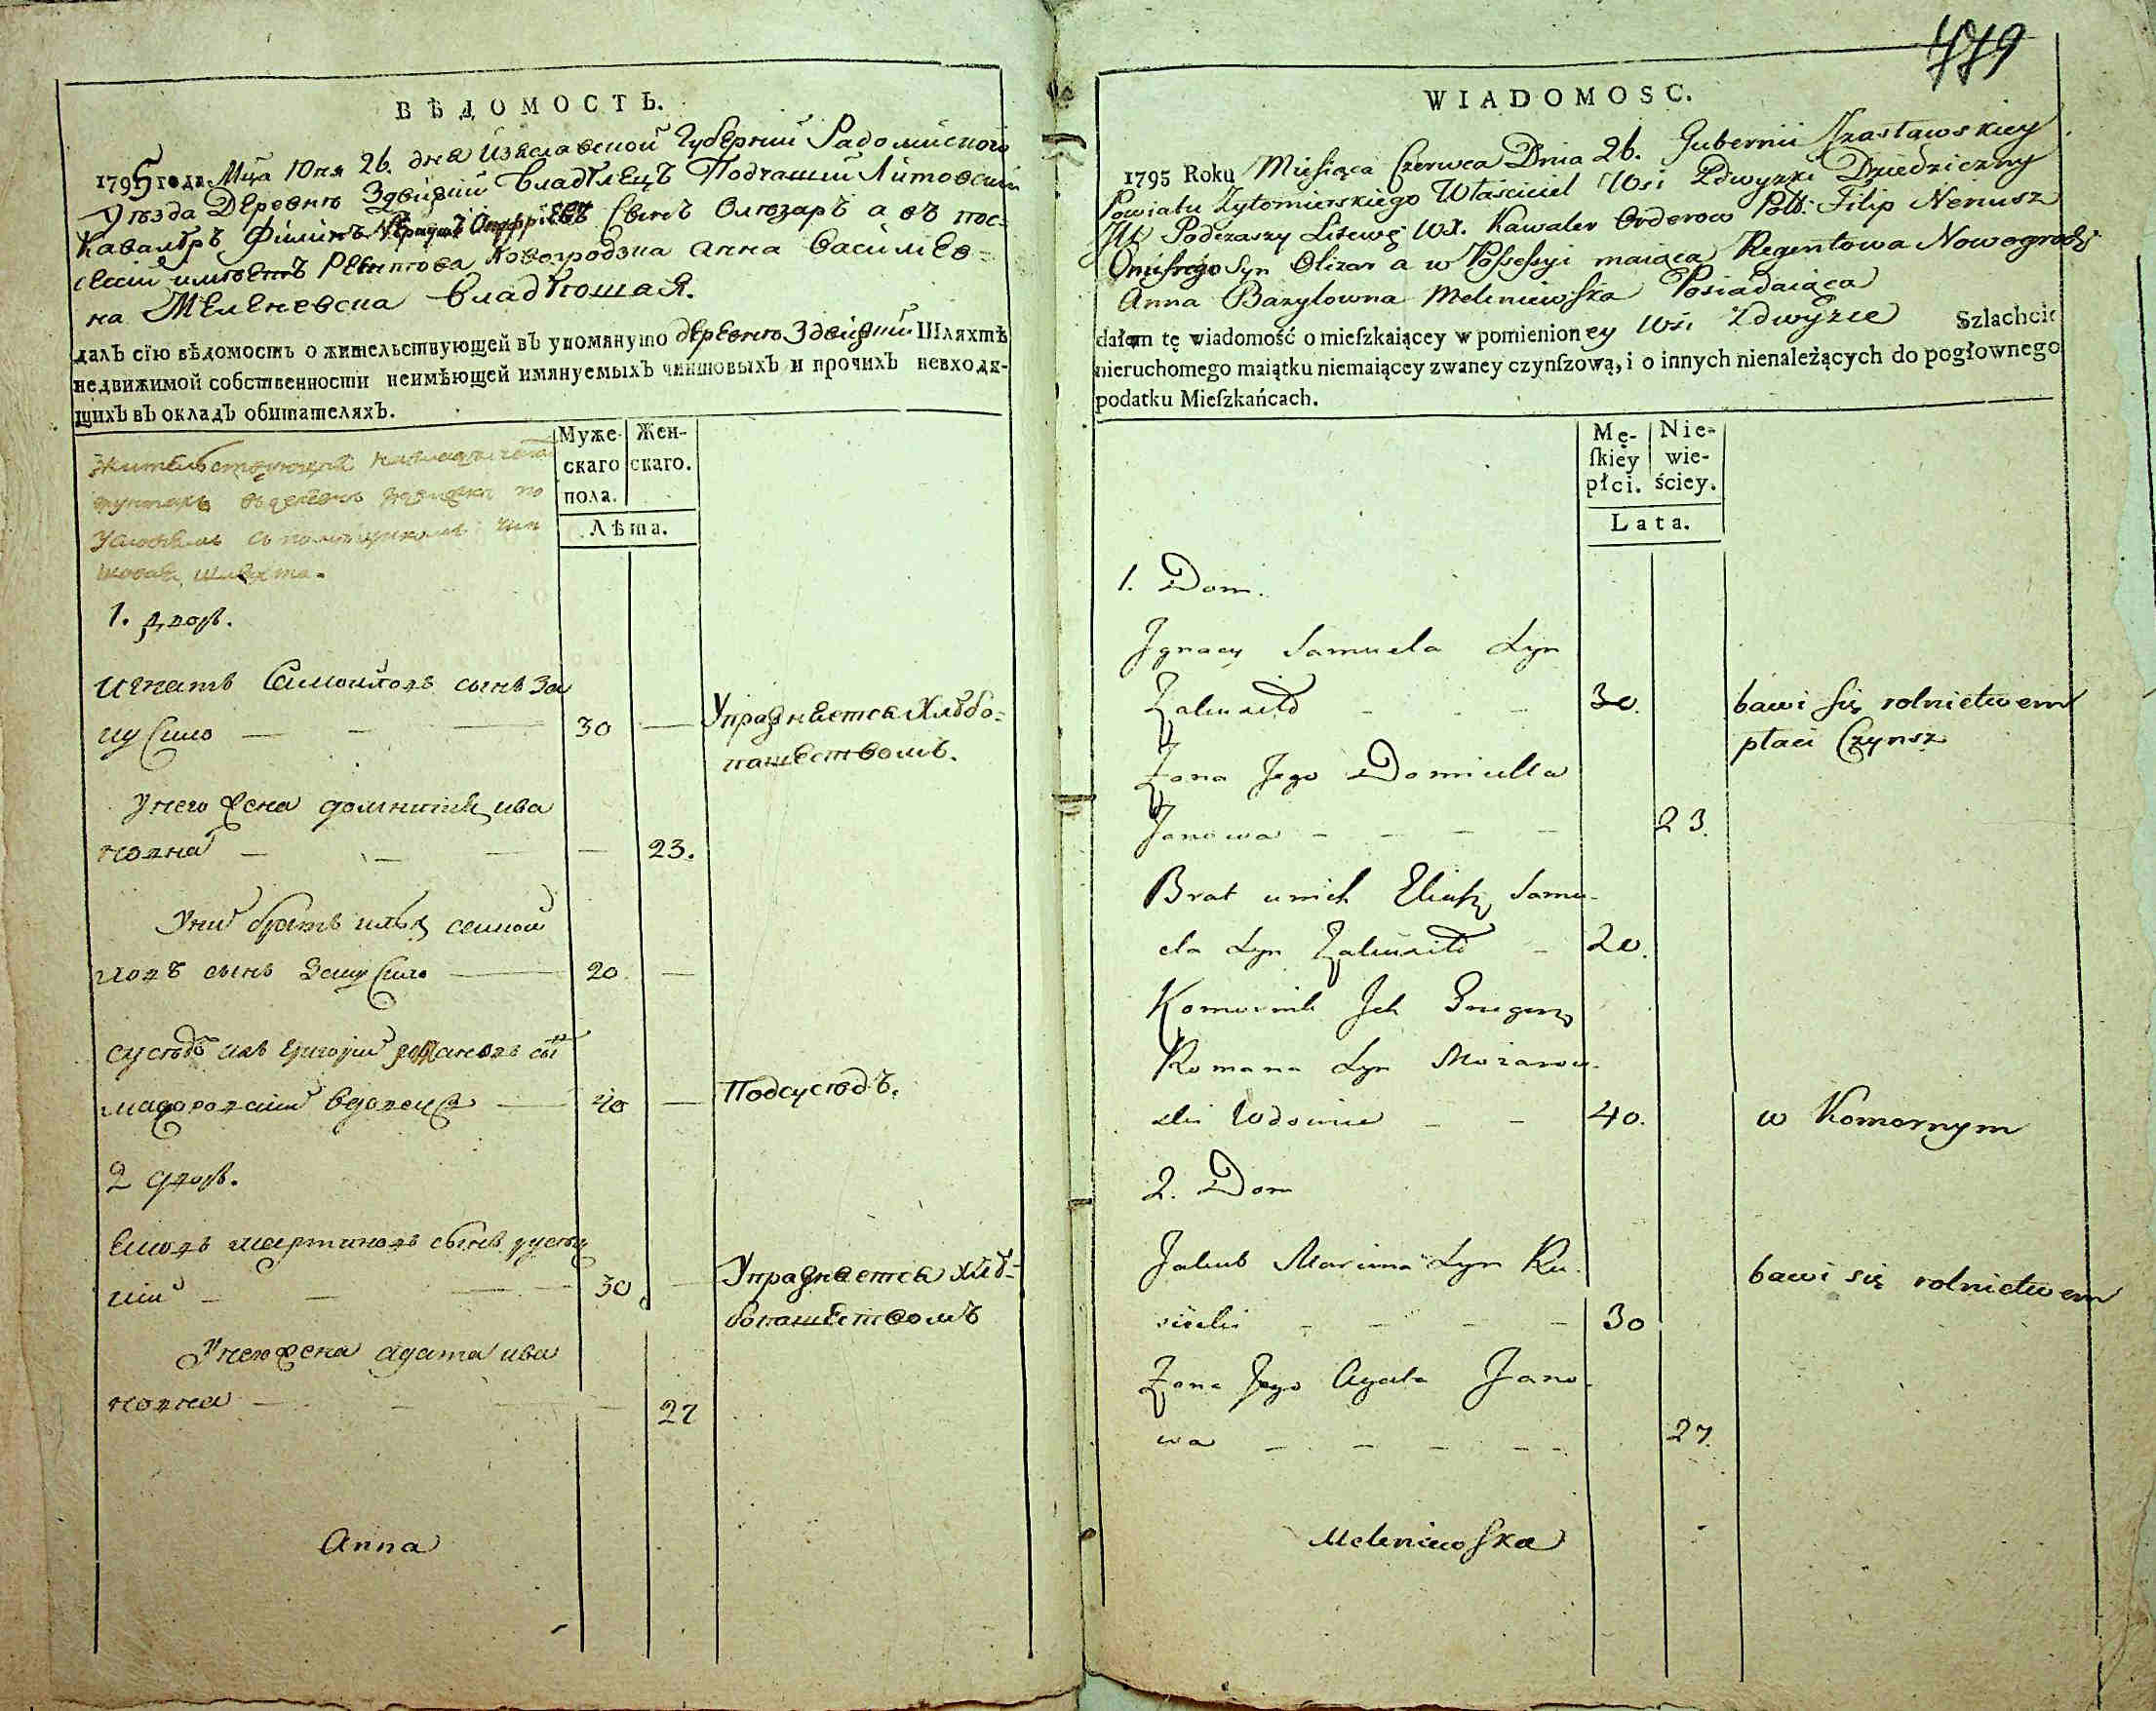 ВѢДОМОСТЬ.
1795 года Мца Июня 26. дня Изяславской Губернии Радомисского
Уѣзда Деревню Здвижки Владѣлецъ Подчаший Литовский
Кавалѣръ Филипъ Нериушъ Онуфриевъ Сынъ Олизаръ а въ пос-
сесии имѣетъ Рейнтова Новогродзка Анна Василев-
на Меленевска Владѣющая.
далъ сїю вѣдомость о жительствующей въ упомянуто деревню Здвижки Шляхтѣ
недвижимой собственности неимѣющей имянуемыхъ чиншовыхъ и прочихъ невходя-
щихъ въ окладъ обитателяхъ.
Муже- Жен-
скаго скаго.
пола.
Лѣта.
шляхта.
1. дворъ.
Игнатъ Самойловъ сынъ За
лу 30 Упражняется Хлѣбо-
пашествомъ.
У него жена домицеля ива
новна 23.
У них братъ илья самой
ловъ сынъ 20
сусѣдъ ихъ григорий романовъ сы
вдовецъ 40 Подсусѣдъ.
2 дворъ.
Яковъ мартиновъ сынъ русец
кий 30 Упражняется хлѣ-
бопашествомъ
У него жена агата ива
новна 27
Anna
779
WIADOMOSC.
1795 Roku Miesiąca Czerwca Dnia 26. Gubernii Izasławskiey
Powiatu Zytomirskiego Właściciel Wsi Zdwyżki Dziedziczny
JW Podczaszy Litewq: WX. Kawaler Orderow Polls: Filip Neriusz
Onufrego Syn Olizar a w Possessyi maiąca Regentowa Nowogrodz:
Anna Bazylowna Meleniewska Posiadaiąca
dałam tę wiadomość o mieſzkaiącey w pomienioney Wsi Zdwyże Szlachcie
nieruchomego maiątku niemaiącey zwaney czynſzową, i o innych nienależących do pogłownego
podatku Mieſzkańcach.
Mę- Nie-
ſkiey wie-
płci. ściey.
Lata.
1. Dom.
Jgnacy Samuela Syn
30. bawi się rolnictwem
płaci Czynsz
Żona Jego Domicella
Janowa 23.
Brat unich Eliasz Samu-
ela Syn 20.
Komornik Jch Grzegorz
Romana Syn Możarow-
ski Wdowiec 40. w Komornym
2. Dom
Jakub Marcina Syn Ru-
siecki 30 bawi się rolnictwem
Żona Jego Agata Jano-
wa 27.
Meleniewska